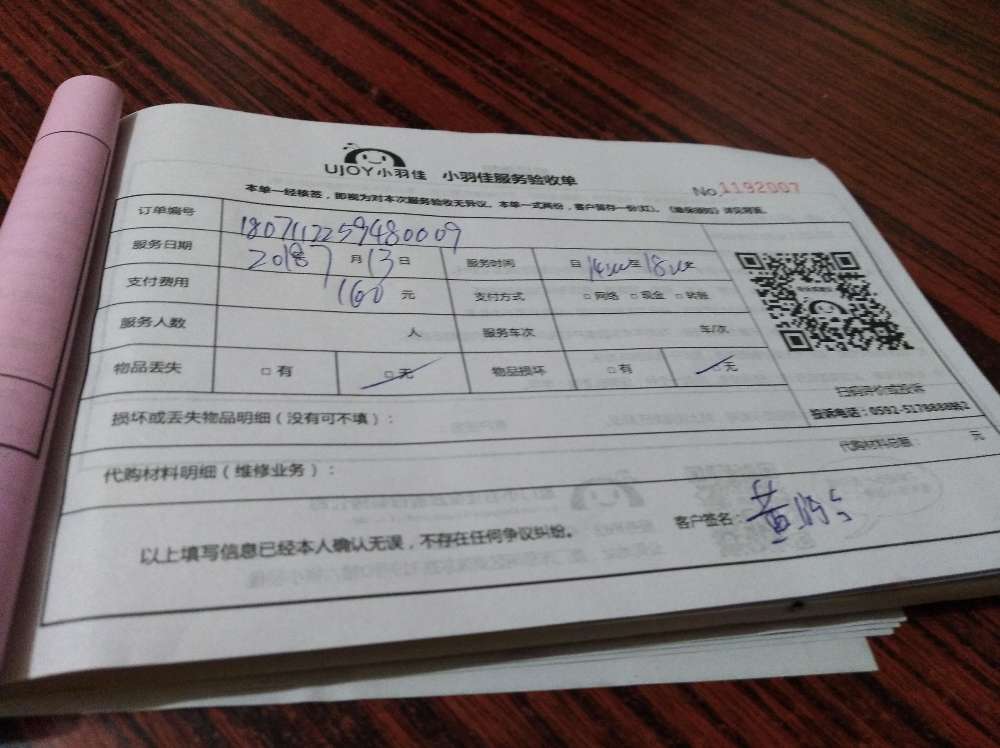 UJOY小羽佳 小羽佳服务验收单
No 1192007
本单一经核签，即视为对本次服务验收无异议。本单一式两份，客户留存一份(红)。
订单编号 1807112259480009
服务日期 2018 7 月 13 日 服务时间 日 14:00 至 18:00
支付费用 160 元 支付方式 □ 网络 □ 现金 □ 转账
服务人数 人 服务车次 车/次
物品丢失 □ 有 □ 无 物品损坏 □ 有 □ 无
扫码评价或投诉
投诉电话：0592-5178888转2
损坏或丢失物品明细（没有可不填）：
代购材料明细（维修业务）： 代购材料总额： 元
以上填写信息已经本人确认无误，不存在任何争议纠纷。 客户签名：黄